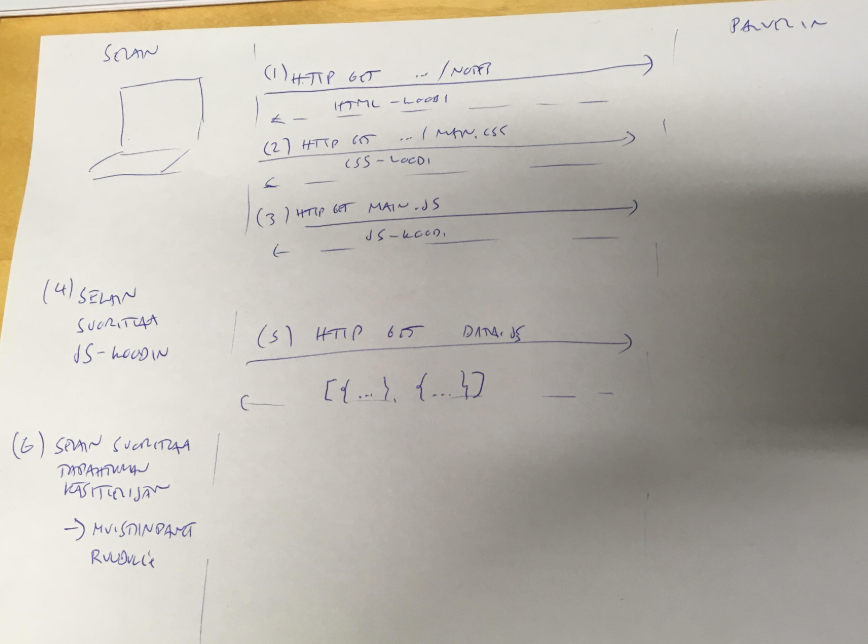 SELAIN
PALVELIN
(1) HTTP GET ... /NOTES
HTML-KOODI
(2) HTTP GET ... / MAIN.CSS
CSS-KOODI
(3) HTTP GET MAIN.JS
JS-KOODI
(4) SELAIN
SUORITTAA
JS-KOODIN
(5) HTTP GET DATA.JS
[{...}, {...}]
(6) SELAIN SUORITTAA
TAPAHTUMAN
KÄSITTELIJÄN
→ MUISTIINPANOT
RUUDULLE